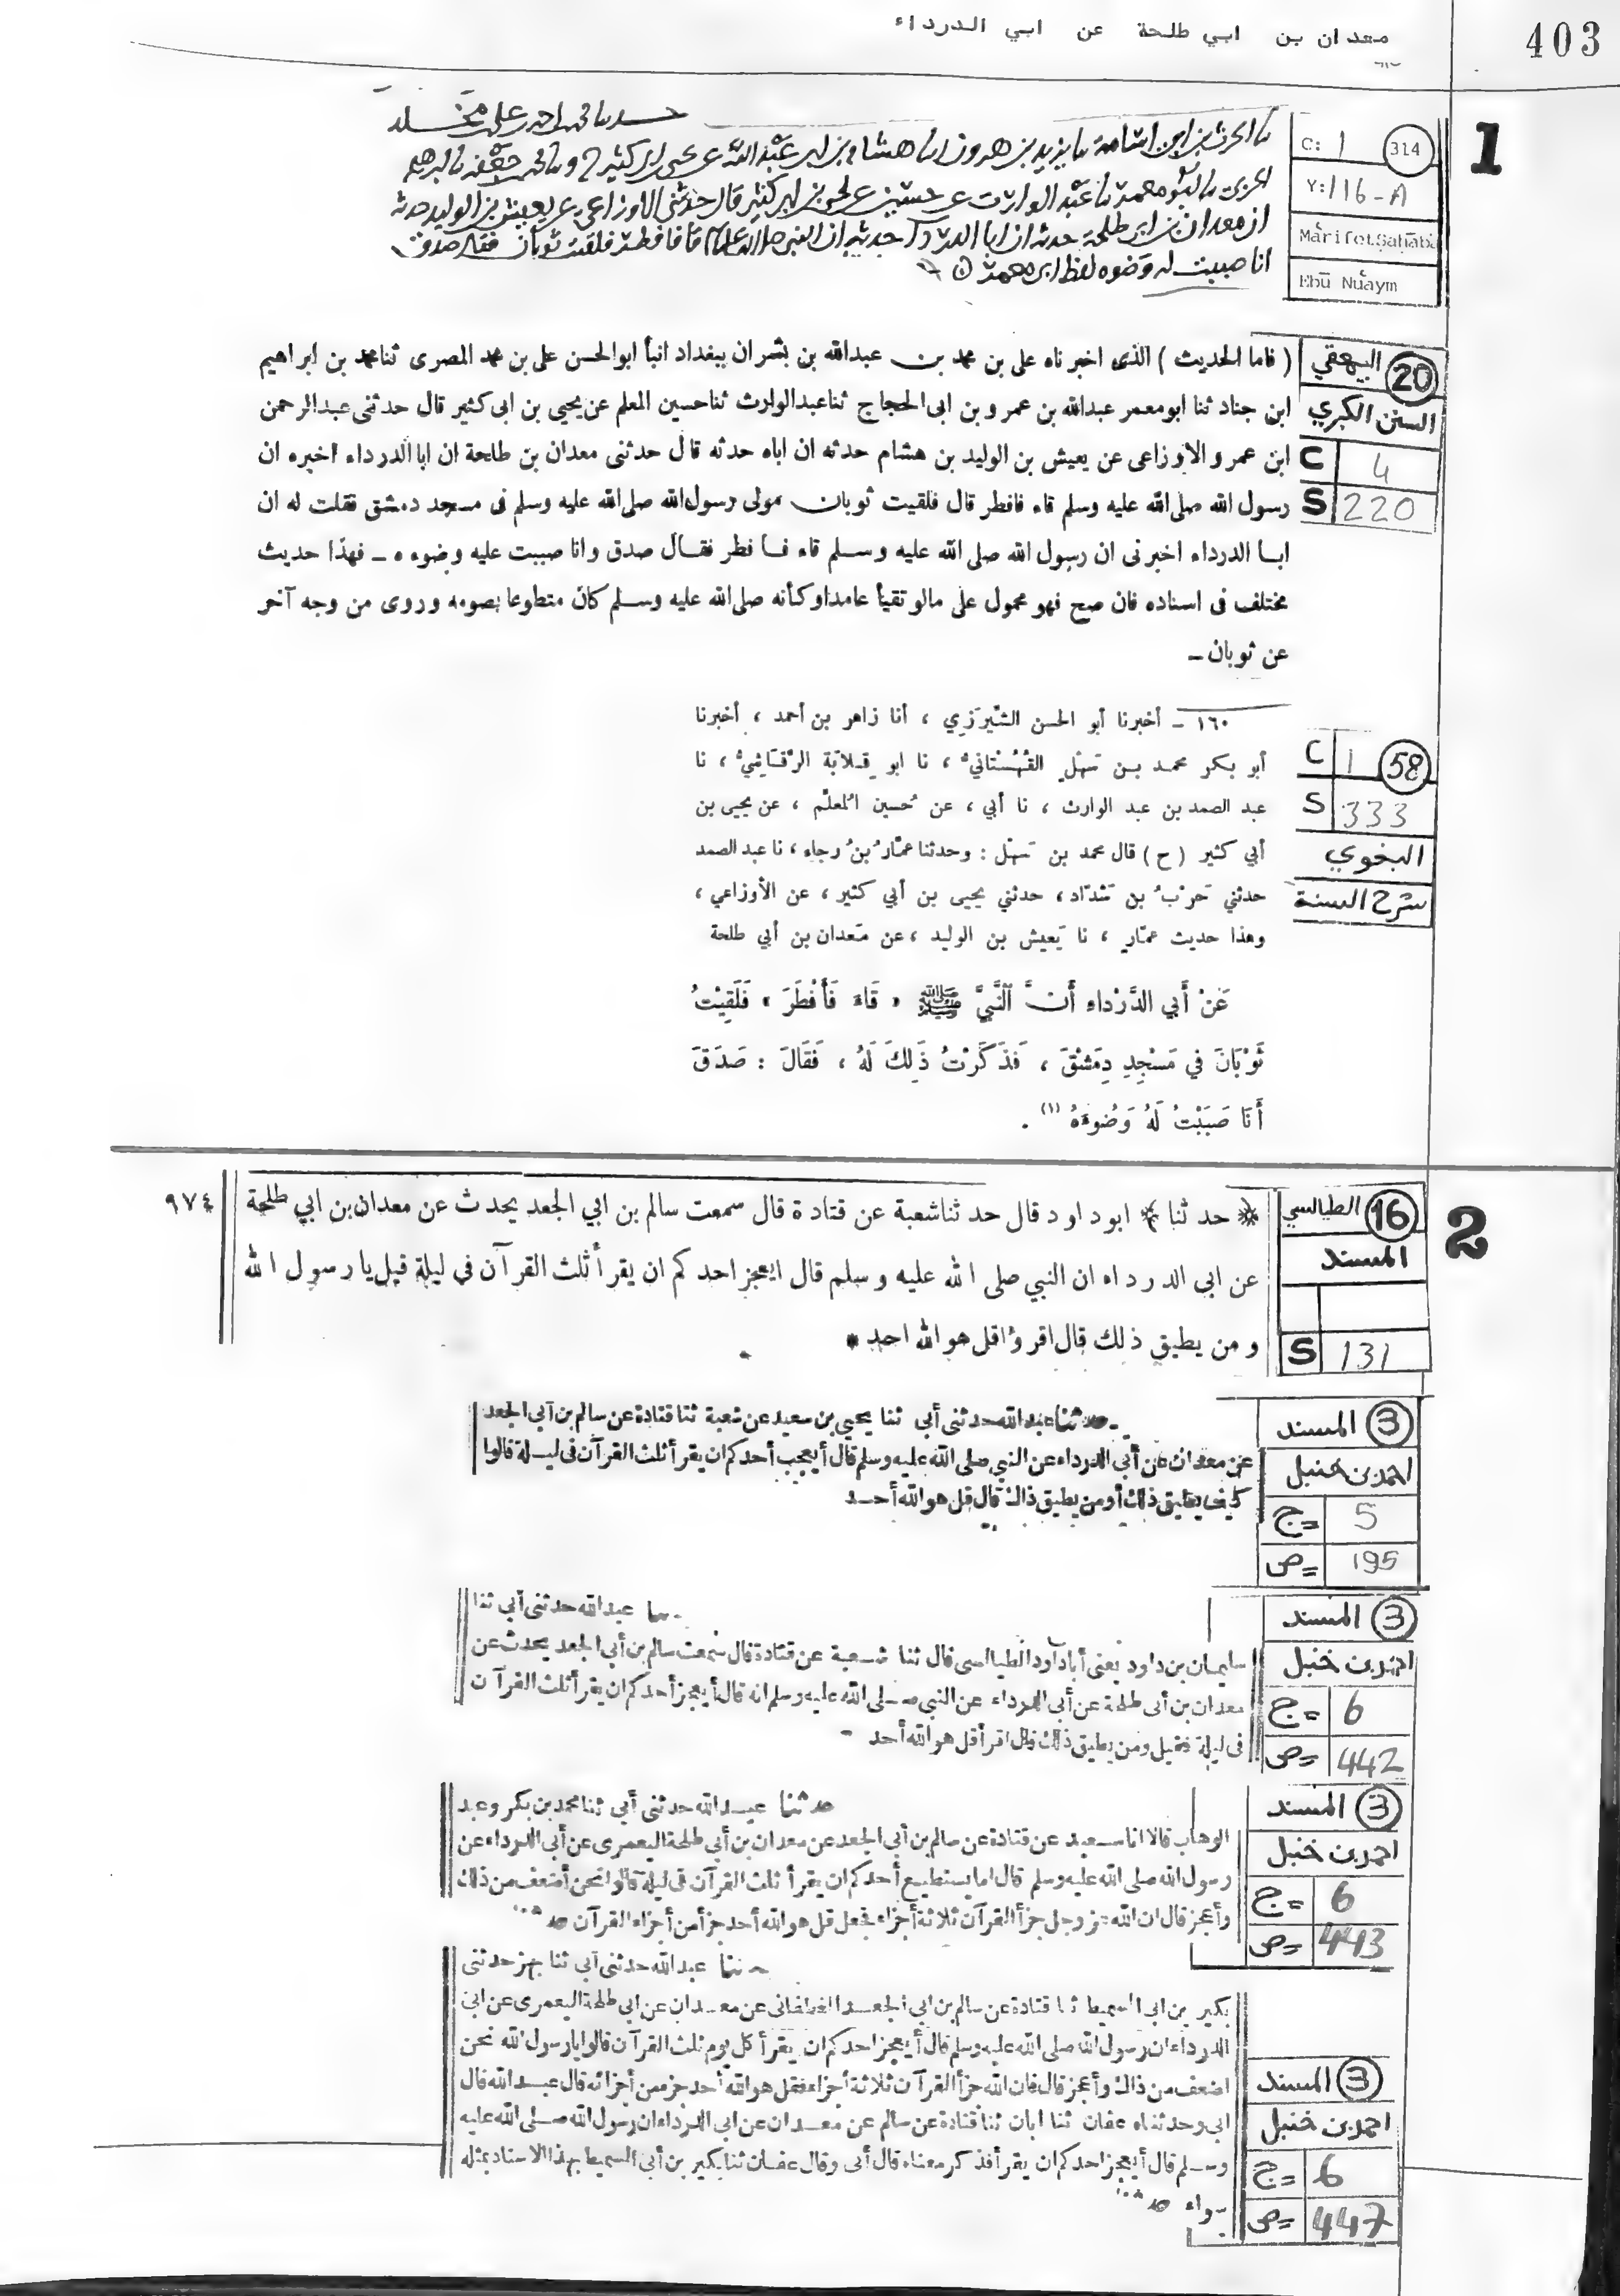 403
معدان بن ابي طلحة عن ابي الدرداء
1
314
C: 1
Y: 116-A
Mârifet.Şahâbe
Ebū Nuaym
يزيد بن هرون
انا صببت له وضوه لفظ ابى معمر
20 البيهقي
السنن الكبري
C 4
S 220
( فاما الحديث ) الذى اخبرناه على بن محمد بن عبدالله بن بشران ببغداد انبأ ابوالحسن على بن محمد المصرى ثنا محمد بن ابراهيم
ابن جناد ثنا ابومعمر عبدالله بن عمرو بن ابى الحجاج ثنا عبدالوارث ثنا حسين المعلم عن يحيى بن ابى كثير قال حدثنى عبدالرحمن
ابن عمرو الاوزاعى عن يعيش بن الوليد بن هشام حدثه ان اباه حدثه قال حدثنى معدان بن طلحة ان ابا الدرداء اخبره ان
رسول الله صلى الله عليه وسلم قاء فافطر قال فلقيت ثوبان مولى رسول الله صلى الله عليه وسلم فى مسجد دمشق فقلت له ان
ابا الدرداء اخبرنى ان رسول الله صلى الله عليه وسلم قاء فافطر فقال صدق وانا صببت عليه وضوءه ـ فهذا حديث
مختلف فى اسناده فان صح فهو محمول على مالو تقيأ عامدا وكأنه صلى الله عليه وسلم كان متطوعا بصومه وروى من وجه آخر
عن ثوبان ـ
58
C 1
S 333
البغوي
شرح السنة
١٦٠ ـ أخبرنا أبو الحسن الشيرَزي ، أنا زاهر بن أحمد ، أخبرنا
أبو بكر محمد بن سهل القُهُستاني ، نا ابو قلابة الرقاشي ، نا
عبد الصمد بن عبد الوارث ، نا أبي ، عن حُسين المعلّم ، عن يحيى بن
أبي كثير ( ح ) قال محمد بن سهل : وحدثنا عمّارُ بنُ رجاء ، نا عبد الصمد
حدثني حَرْبُ بن شدّاد ، حدثني يحيى بن أبي كثير ، عن الأوزاعي ،
وهذا حديث عمّارٍ ، نا يَعيش بن الوليد ، عن مَعدان بن أبي طلحة
عَنْ أَبي الدَّرْداءِ أَنَّ النَّبيَّ ﷺ « قَاءَ فَأَفْطَرَ » فَلَقِيْتُ
ثَوْبَانَ في مَسْجِدِ دِمَشْقَ ، فَذَكَرْتُ ذَلِكَ لَهُ ، فَقَالَ : صَدَقَ
أَنَا صَبَبْتُ لَهُ وَضُوءَهُ (١) .
2
16 الطيالسي
المسند
S 131
٩٧٤
﴿ حدثنا ﴾ ابوداود قال حدثنا شعبة عن قتادة قال سمعت سالم بن ابي الجعد يحدث عن معدان بن ابي طلحة
عن ابى الدرداء ان النبي صلى الله عليه وسلم قال ايعجز احدكم ان يقرأ ثلث القرآن فى ليلة قيل يا رسول الله
ومن يطيق ذلك قال اقرؤا قل هو الله احد *
3 المسند
احمد بن حنبل
ج= 5
ص= 195
حدثنا عبدالله حدثنى أبى ثنا يحيى بن سعيد عن شعبة ثنا قتادة عن سالم بن أبى الجعد
عن معدان عن أبى الدرداء عن النبى صلى الله عليه وسلم قال أيعجب أحدكم ان يقرأ ثلث القرآن فى ليلة قالوا
كيف يطيق ذلك أو من يطيق ذاك قال قل هو الله أحد
3 المسند
احمد بن حنبل
ج= 6
ص= 442
ـنا عبدالله حدثنى أبى ثنا
سليمان بن داود يعنى أباداود الطيالسى قال ثنا شعبة عن قتادة قال سمعت سالم بن أبى الجعد يحدث عن
معدان بن أبى طلحة عن أبى الدرداء عن النبى صلى الله عليه وسلم انه قال أيعجز أحدكم ان يقرأ ثلث القرآن
فى ليلة فقيل ومن يطيق ذلك قال اقرأ قل هو الله أحد
3 المسند
احمد بن حنبل
ج= 6
ص= 443
حدثنا عبدالله حدثنى أبى ثنا محمد بن بكر وعبد
الوهاب قالا انا سعيد عن قتادة عن سالم بن أبى الجعد عن معدان بن أبى طلحة اليعمرى عن أبى الدرداء عن
رسول الله صلى الله عليه وسلم قال اما يستطيع أحدكم ان يقرأ ثلث القرآن فى ليلة قالوا نحن أضعف من ذلك
وأعجز قال ان الله عز وجل جزأ القرآن ثلاثة أجزاء فجعل قل هو الله أحد جزأ من أجزاء القرآن
ـنا عبدالله حدثنى أبى ثنا بهز حدثنى
بكير بن ابى السميط ثنا قتادة عن سالم بن ابى الجعد الغطفانى عن معدان عن ابى طلحة اليعمرى عن ابى
الدرداء ان رسول الله صلى الله عليه وسلم قال أيعجز احدكم ان يقرأ كل يوم ثلث القرآن قالوا يا رسول الله نحن
اضعف من ذاك وأعجز قال فان الله جزأ القرآن ثلاثة أجزاء فقل هو الله أحد جزء من أجزائه قال عبدالله قال
ابى وحدثناه عفان ثنا ابان ثنا قتادة عن سالم عن معدان عن ابى الدرداء ان رسول الله صلى الله عليه
وسلم قال أيعجز احدكم ان يقرأ فذكر معناه قال أبى وقال عفان ثنا بكير بن أبى السميط بهذا الاسناد مثله
سواء
3 المسند
احمد بن حنبل
ج= 6
ص= 447